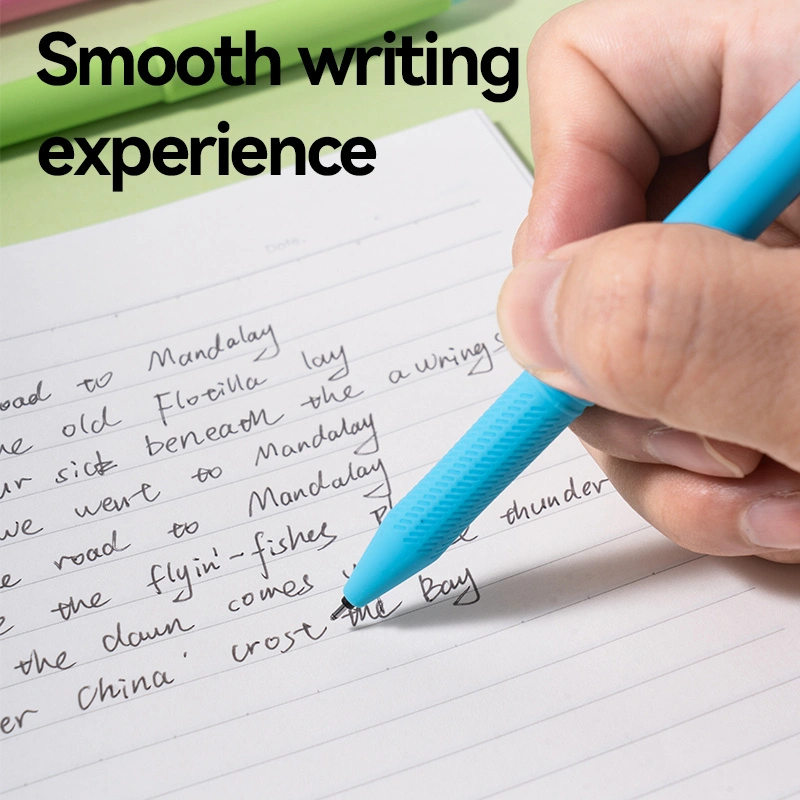 Smooth writing
experience
Date.
oad to Mandalay
he old Flotilla lay
ur sick beneath the awnings
we went to Mandalay
e road to Mandalay
e the flyin'-fishes
the dawn comes thunder
er China' crost the Bay